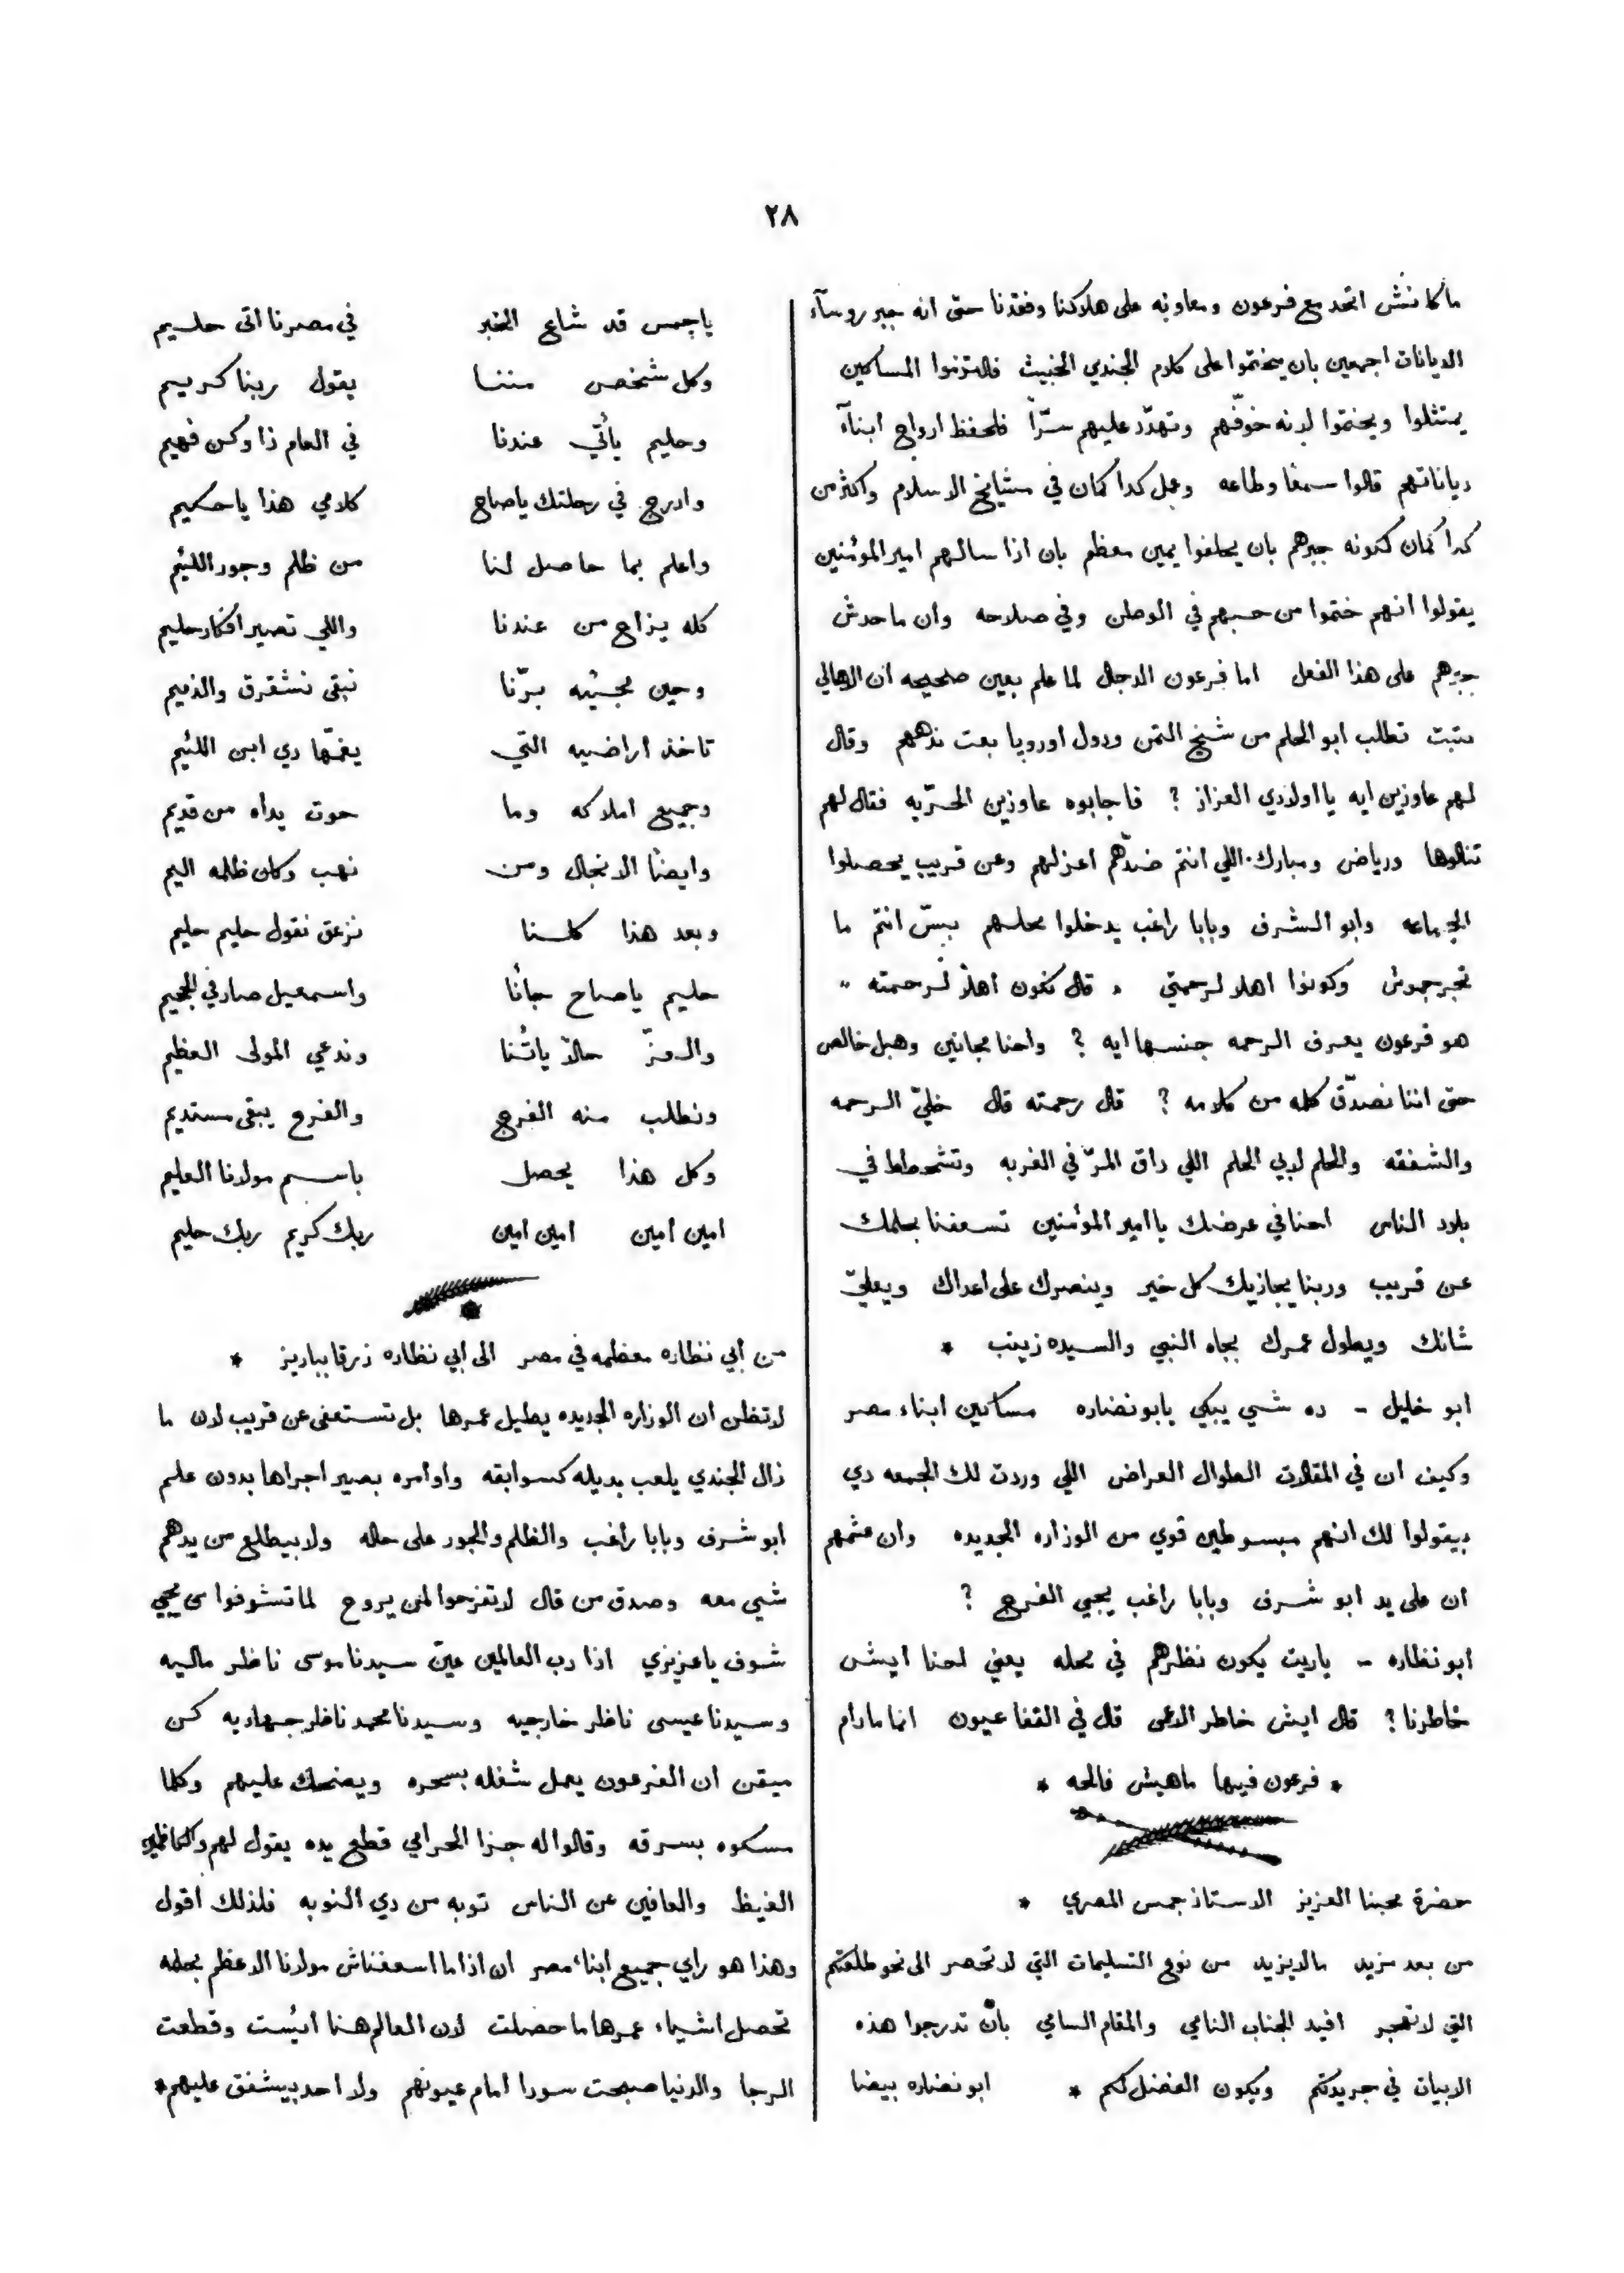 ٢٨
ما كانش اتحد مع فرعون ومعاونه على هلاكنا وفقدنا حتى انه جبر روسآء
الديانات اجمعين بان يختموا على كلام الجندي الخبيث فالتزموا المساكين
يمتثلوا ويختموا لانه خوّفهم وتهدّد عليهم سرّاً فلحفظ ارواح ابنآء
دياناتهم قالوا سمعًا وطاعه وعمل كدا كمان في مشايخ الاسلام واكثر من
كدا كمان لكونه جبرهم بان يحلفوا يمين معظم بان اذا سالهم امير المؤمنين
يقولوا انهم ختموا من حبهم في الوطن وفي صلاحه وان ماحدش
جبرهم على هذا الفعل اما فرعون الدجال لما علم بعين صحيحه ان الاهالي
كتبت تطلب ابو الحلم من شيخ التمن ودول اوروپا بعت ندههم وقال
لهم عاوزين ايه يا اولادي العزاز ؟ فاجابوه عاوزين الحرّيه فقال لهم
تنالوها ورياض ومبارك اللي انتم ضدّهم اعزلهم وعن قريب يحصلوا
الجماعه وابو الشرف وبابا راغب يدخلوا محلهم بسّ انتم ما
تجرجموش وكونوا اهلا لرحمتي « قال نكون اهلاً لرحمته »
هو فرعون يعرف الرحمه جنسها ايه ؟ واحنا مجانين وهبل خالص
حتى اننا نصدّق كله من كلامه ؟ قال رحمته قال خليّ الرحمه
والشفقه والحلم لابي الحلم اللي داق المرّ في الغربه وتشحطط في
بلاد الناس احنا في عرضك يا امير المؤمنين تسعفنا بحلمك
عن قريب وربنا يجازيك كل خير وينصرك على اعداك ويعليّ
شانك ويطول عمرك بجاه النبي والسيده زينب *
ابو خليل - ده شي يبكي يابو نضاره مساكين ابناء مصر
وكيف ان في المقالات الطوال العراض اللي وردت لك الجمعه دي
بيقولوا لك انهم مبسوطين قوي من الوزاره الجديده وان عشمهم
ان على يد ابو شرف وبابا راغب يجي الفرج ؟
ابو نظاره - ياريت يكون نظرهم في محله يعني احنا ايش
خاطرنا ؟ قال ايش خاطر الاعمى قال في القفا عيون انما مادام
* فرعون فيها ماهيش فالحه *
حضرة محبنا العزيز الاستاذ جمس المصري *
من بعد مزيد مالايزيد من نوع التسليمات التي لا تحصر الى نحو طلعتكم
التي لا تهجر افيد الجناب النامي والمقام السامي بانّ تدرجوا هذه
الابيات في جريدتكم ويكون الفضل لكم * ابو نضاره بيضا
ياجمس قد شاع الخبر في مصرنا اتى حليم
وكل شخص مننا يقول ربنا كريم
وحليم يأتي عندنا في العام ذا وكن فهيم
وادرج في رحلتك ياصاح كلامي هذا ياحكيم
واعلم بما حاصل لنا من ظلم وجور اللئيم
كله يزاح من عندنا واللي تصير افكار حليم
وحين مجئيه برّنا نبقى نشقرق والذميم
تاخذ اراضيه التي يغمّها دي ابن اللئيم
وجميع املاكه وما حوت يداه من قديم
وايضًا الانجال ومن نهب وكان ظلمه اليم
وبعد هذا كلنا نزعق نقول حليم حليم
حليم ياصاح جانًا واسمعيل صار في الجحيم
والعزّ حالاً ياتنا وندعي المولى العظيم
ونطلب منه الفرج والفرح يبقى مستديم
وكل هذا يحصل باسم مولانا العليم
امين امين امين امين ربك كريم ربك حليم
من أبي نظاره معظمه في مصر الى ابي نظاره زرقا بباريز *
لا تظن ان الوزاره الجديده يطيل عمرها بل تستعفى عن قريب لان ما
زال الجندي يلعب بديله كسوابقه واوامره بصير اجراها بدون علم
ابو شرف وبابا راغب والظلم والجور على حاله ولا بيطلع من يدهم
شي معه وصدق من قال لا تفرحوا لمن يروح لما تشوفوا مين يجي
شوف ياعزيزي اذا رب العالمين عيّن سيدنا موسى ناظر ماليه
وسيدنا عيسى ناظر خارجيه وسيدنا محمد ناظر جهاديه كن
ميقن ان الفرعون يعمل شغله بسحره ويضحك عليهم وكلما
مسكوه بسرقه وقالوا له جزا الحرامي قطع يده يقول لهم والكاظمين
الغيظ والعافين عن الناس توبه من دي النوبه فلذلك اقول
وهذا هو راي جميع ابناء مصر ان اذا ما اسعفناش مولانا الاعظم بحلمه
تحصل اشياء عمرها ما حصلت لان العالم هنا ائيست وقطعت
الرجا والدنيا صبحت سودا امام عيونهم ولا احد بيشفق عليهم *